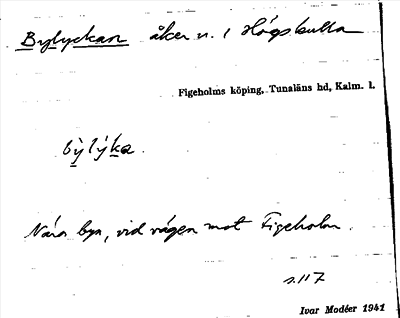 Bylyckan åker n. i Högskulla
Figeholms köping, Tunaläns hd, Kalm. l.
bỳlỳka.
Nära byn, vid vägen mot Figeholm.
s.117
Ivar Modéer 1941